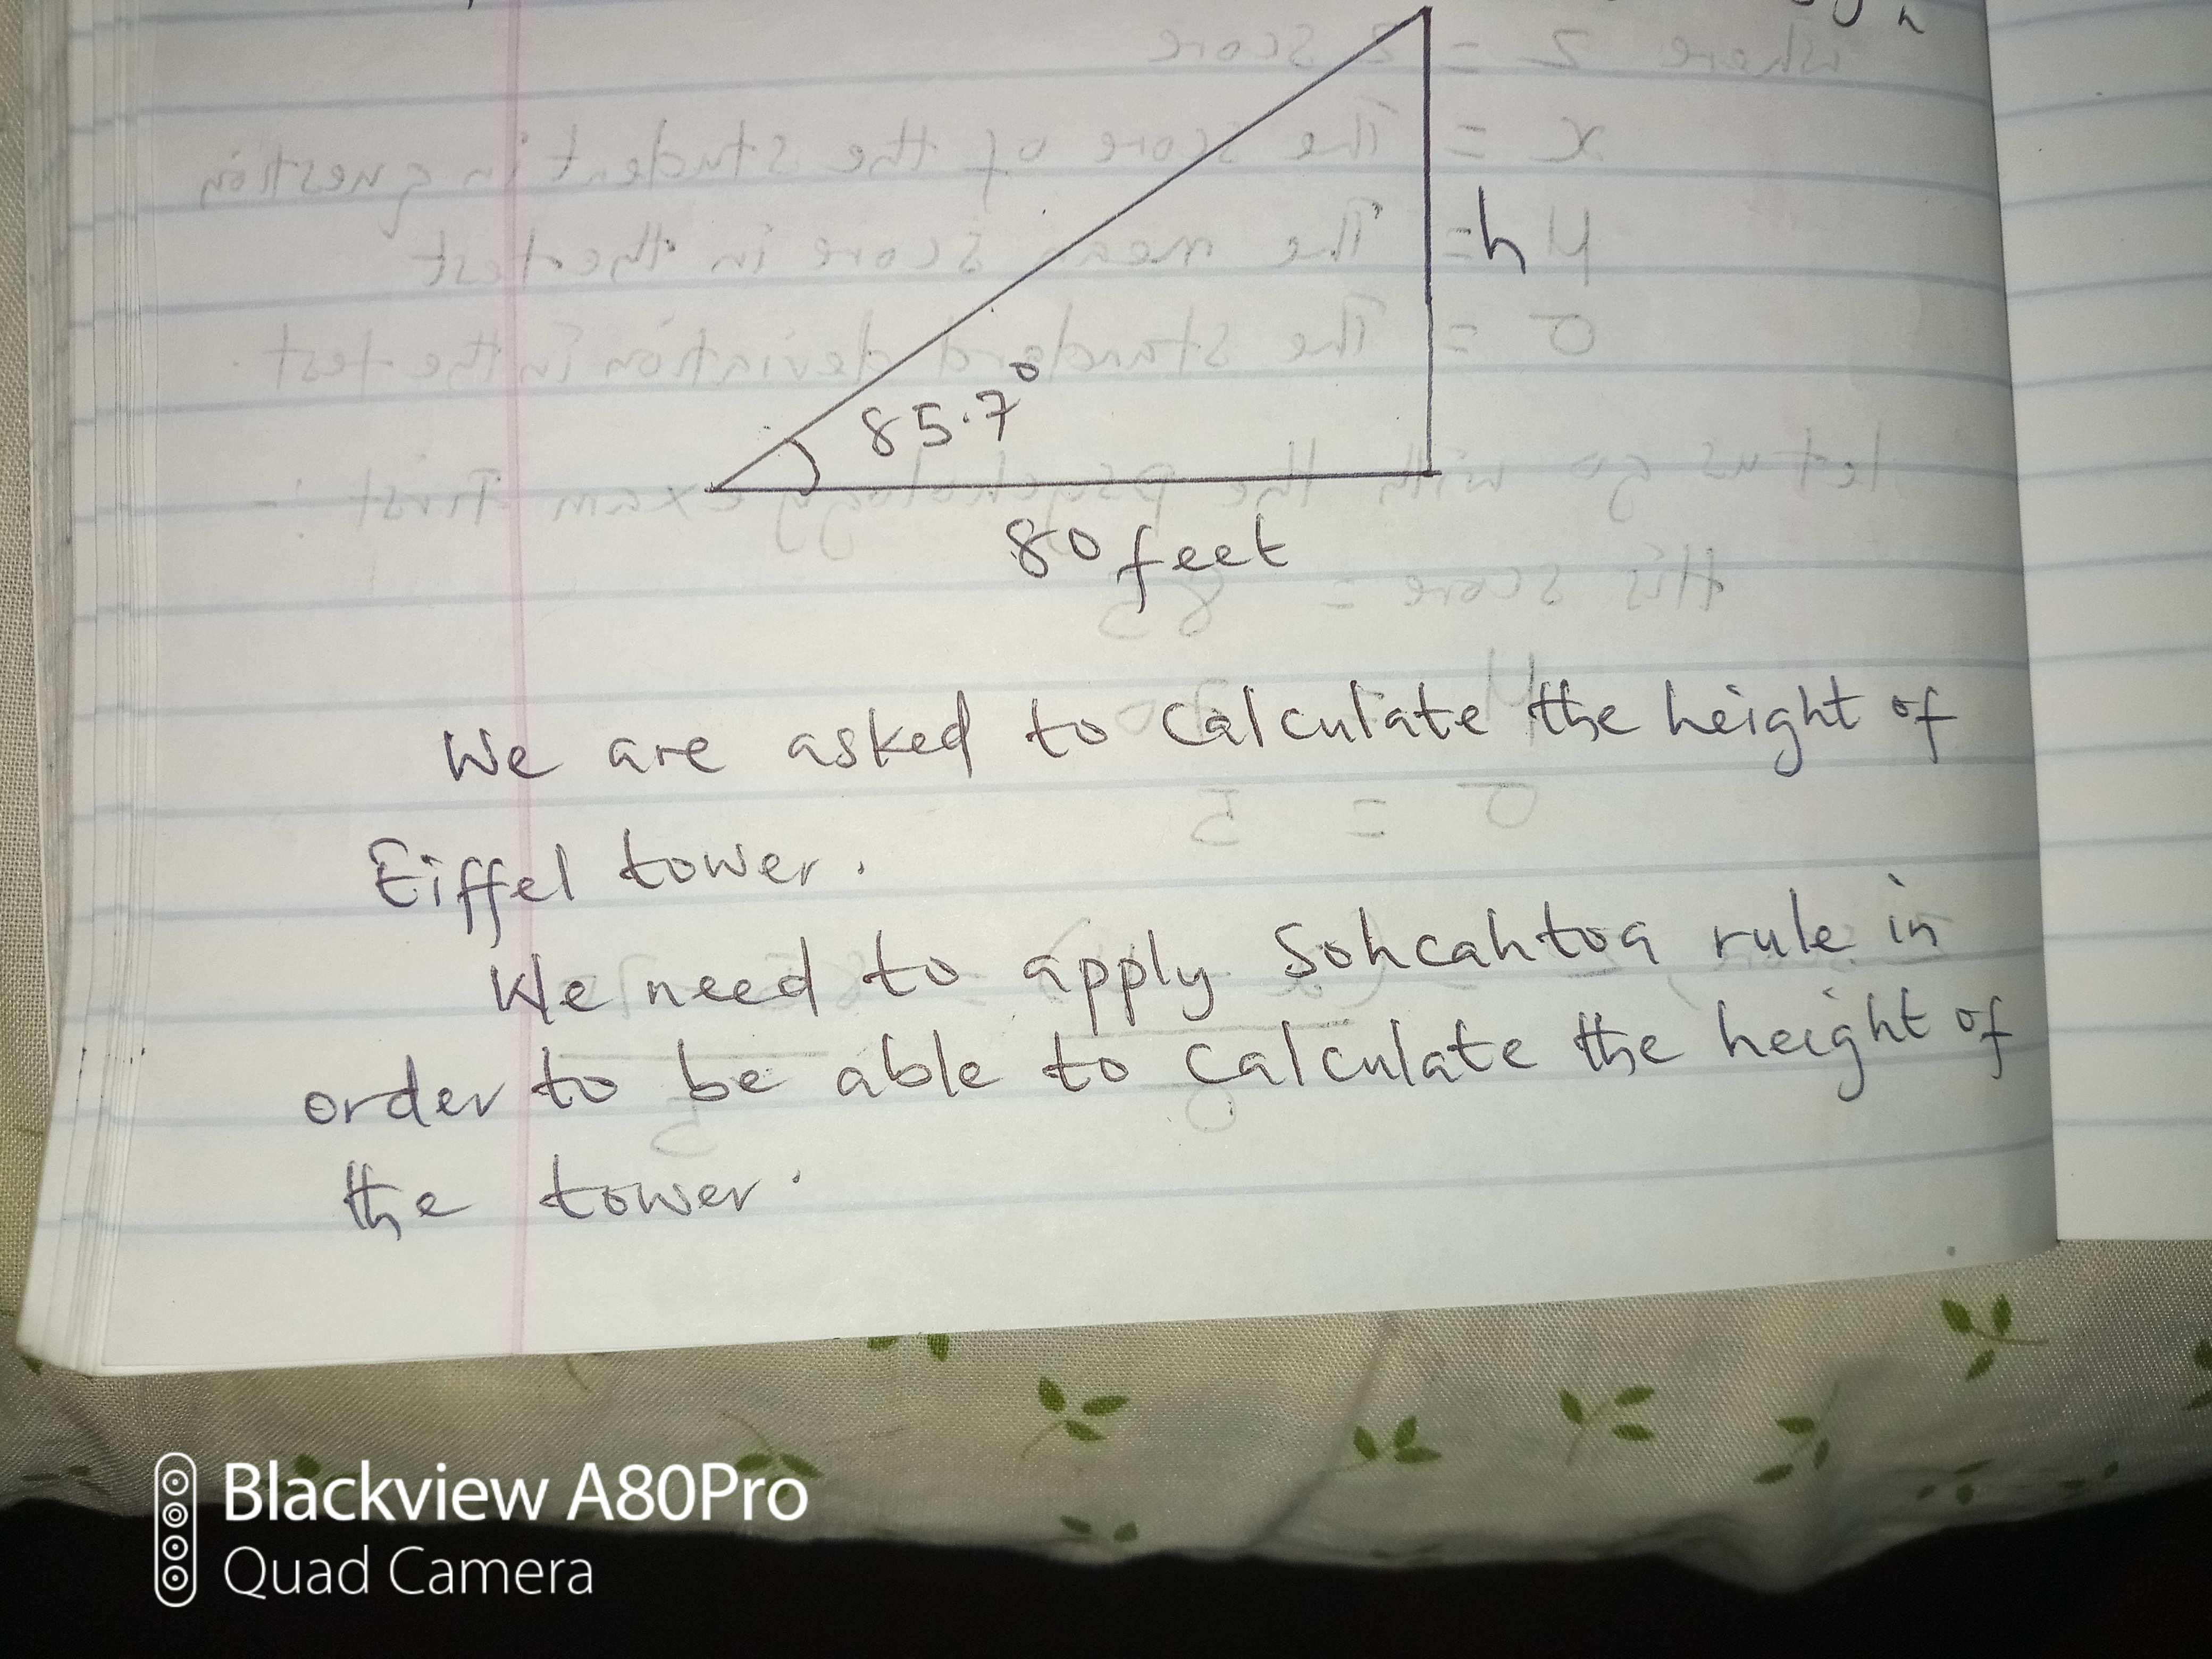 h
85.7°
80 feet
We are asked to calculate the height of
Eiffel tower.
We need to apply Sohcahtoa rule in
order to be able to calculate the height of
the tower.
Blackview A80Pro
Quad Camera